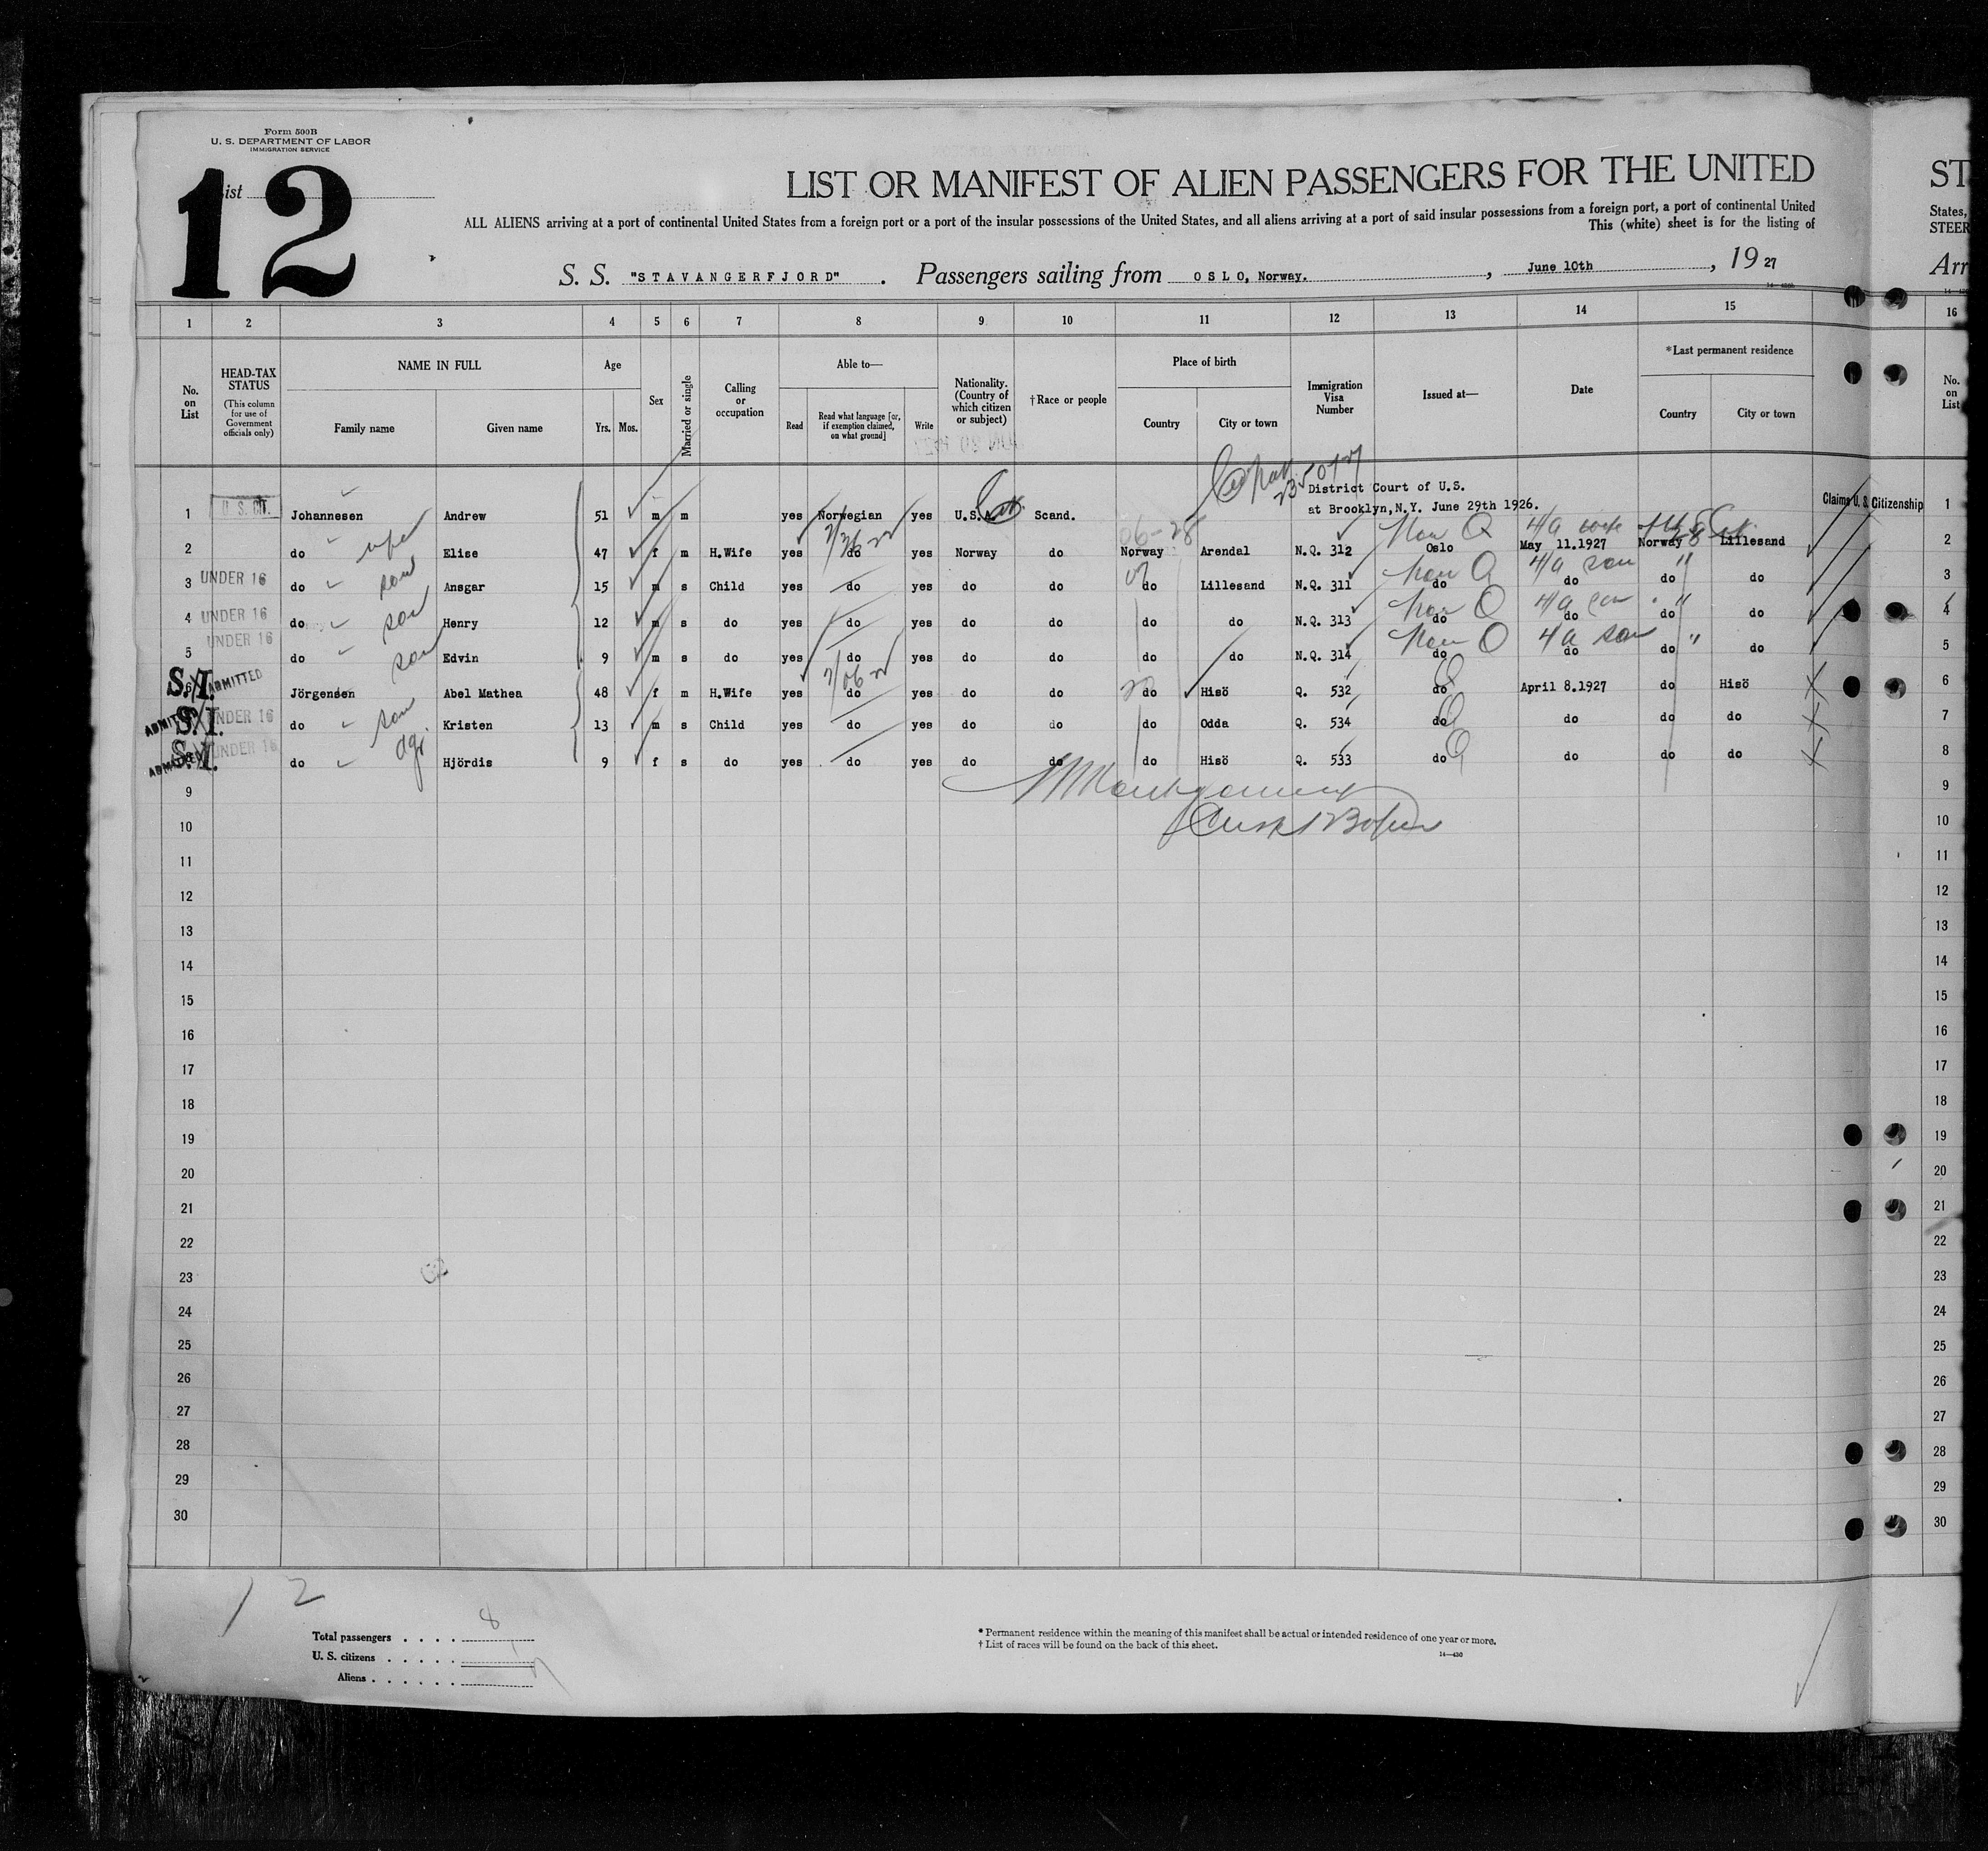 Form 500B
U. S. DEPARTMENT OF LABOR
IMMIGRATION SERVICE
12
LIST OR MANIFEST OF ALIEN PASSENGERS FOR THE UNITED
ST
ALL ALIENS arriving at a port of continental United States from a foreign port or a port of the insular possessions of the United States, and all aliens arriving at a port of said insular possessions from a foreign port, a port of continental United
States,
This (white) sheet is for the listing of
STEER
S. S. "STAVANGERFJORD". Passengers sailing from OSLO, Norway., June 10th, 1927
Arr
1 2 3 4 5 6 7 8 9 10 11 12 13 14 15 16
No. on List
HEAD-TAX STATUS
(This column for use of Government officials only)
NAME IN FULL
Family name Given name
Age
Yrs. Mos.
Sex
Married or single
Calling or occupation
Able to—
Read
Read what language [or, if exemption claimed, on what ground]
Write
Nationality. (Country of which citizen or subject)
† Race or people
Place of birth
Country City or town
Immigration Visa Number
Issued at—
Date
*Last permanent residence
Country City or town
No. on List
District Court of U.S.
at Brooklyn, N.Y. June 29th 1926.
1 U. S. CIT. Johannesen Andrew 51 m m yes Norwegian yes U.S.A. Scand. Claims U. S. Citizenship 1
2 do wife Elise 47 f m H.Wife yes do yes Norway do Norway Arendal N.Q. 312 Non Q Oslo 4/a wife May 11.1927 Norway Lillesand 2
3 UNDER 16 do son Ansgar 15 m s Child yes do yes do do do Lillesand N.Q. 311 Non Q do 4/a son do do " do 3
4 UNDER 16 do son Henry 12 m s do yes do yes do do do do N.Q. 313 Non Q do 4/a son do do " do 4
5 UNDER 16 do son Edvin 9 m s do yes do yes do do do do N.Q. 314 Non Q do 4a son do do " do 5
6 S.I. ADMITTED Jörgensen Abel Mathea 48 f m H.Wife yes do yes do do do Hisö Q. 532 do Q April 8.1927 do Hisö 6
S.I. ADMITTED UNDER 16 do son Kristen 13 m s Child yes do yes do do do Odda Q. 534 do Q do do do 7
S.I. ADMITTED UNDER 16 do dgr. Hjördis 9 f s do yes do yes do do do Hisö Q. 533 do Q do do do 8
9 9
10 10
11 11
12 12
13 13
14 14
15 15
16 16
17 17
18 18
19 19
20 20
21 21
22 22
23 23
24 24
25 25
26 26
27 27
28 28
29 29
30 30
12
Total passengers . . . . 8
U. S. citizens . . . . . 1
Aliens . . . . . . 7
* Permanent residence within the meaning of this manifest shall be actual or intended residence of one year or more.
† List of races will be found on the back of this sheet.
14—430